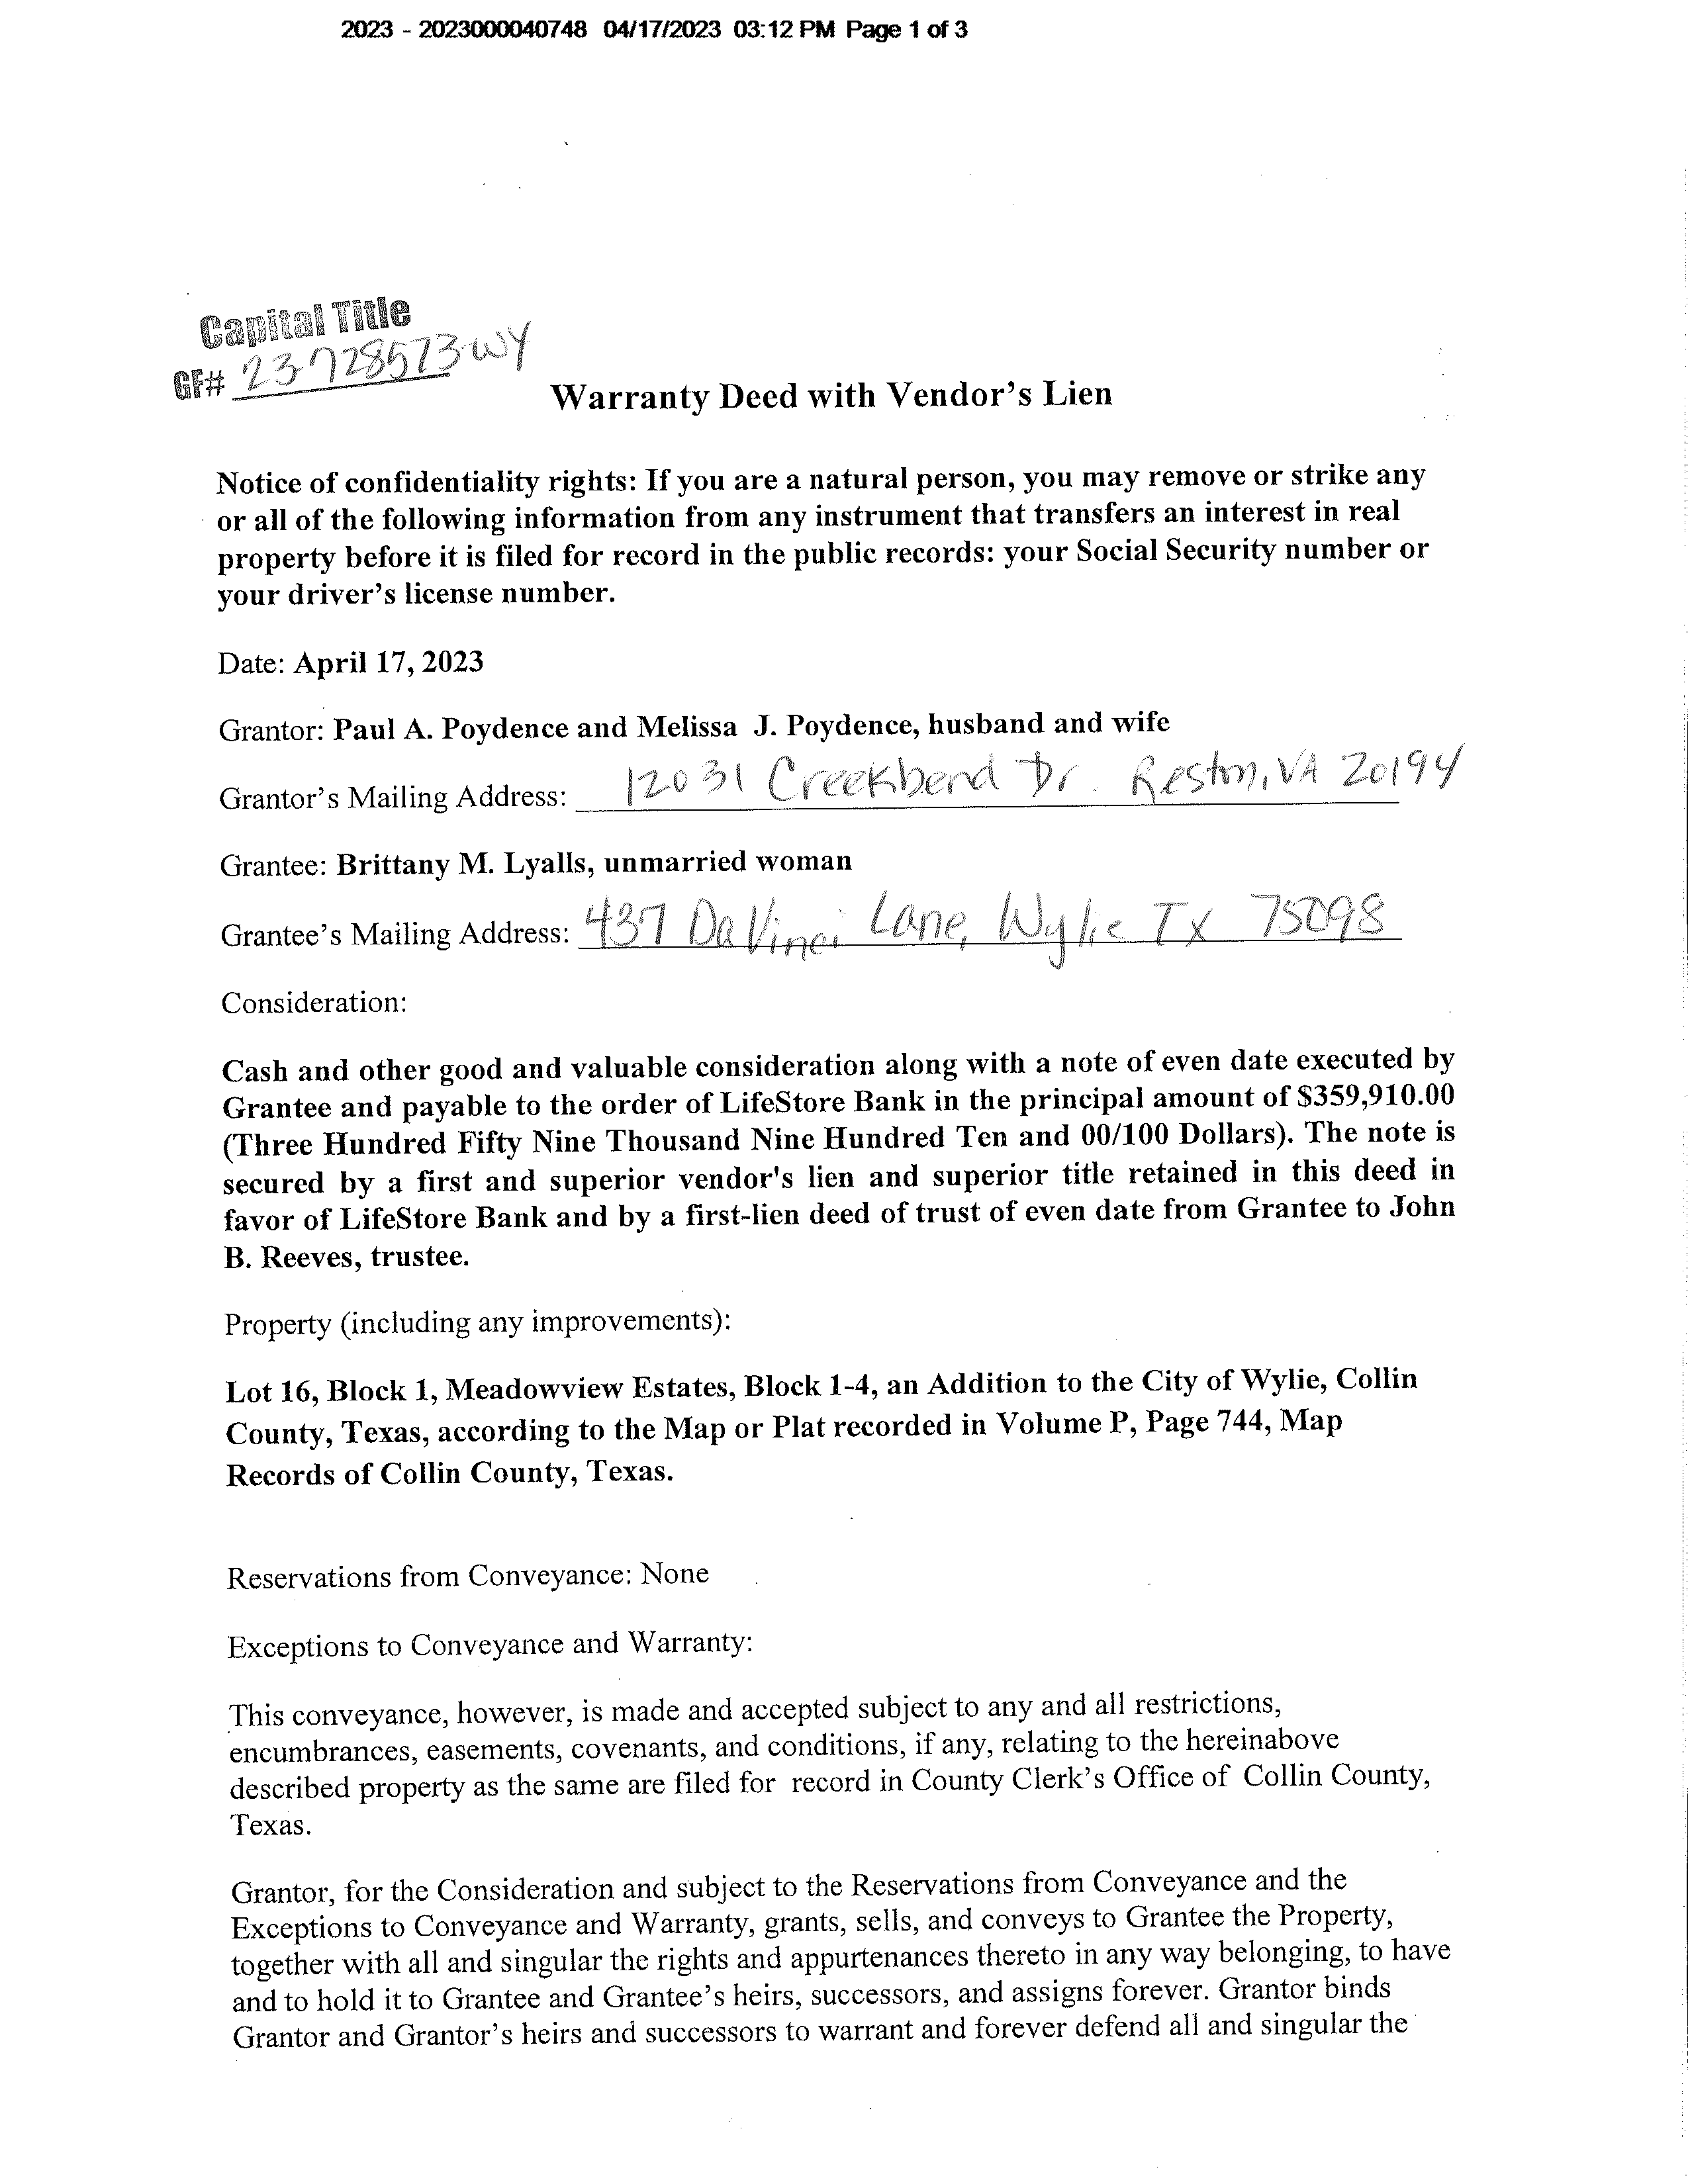 2023 - 2023000040748 04/17/2023 03:12 PM Page 1 of 3
Capital Title
GF# 23-728573-WY
Warranty Deed with Vendor's Lien
Notice of confidentiality rights: If you are a natural person, you may remove or strike any
or all of the following information from any instrument that transfers an interest in real
property before it is filed for record in the public records: your Social Security number or
your driver's license number.
Date: April 17, 2023
Grantor: Paul A. Poydence and Melissa J. Poydence, husband and wife
Grantor's Mailing Address: 12031 Creekbend Dr. Reston, VA 20194
Grantee: Brittany M. Lyalls, unmarried woman
Grantee's Mailing Address: 437 Da Vinci Lane, Wylie TX 75098
Consideration:
Cash and other good and valuable consideration along with a note of even date executed by
Grantee and payable to the order of LifeStore Bank in the principal amount of $359,910.00
(Three Hundred Fifty Nine Thousand Nine Hundred Ten and 00/100 Dollars). The note is
secured by a first and superior vendor's lien and superior title retained in this deed in
favor of LifeStore Bank and by a first-lien deed of trust of even date from Grantee to John
B. Reeves, trustee.
Property (including any improvements):
Lot 16, Block 1, Meadowview Estates, Block 1-4, an Addition to the City of Wylie, Collin
County, Texas, according to the Map or Plat recorded in Volume P, Page 744, Map
Records of Collin County, Texas.
Reservations from Conveyance: None
Exceptions to Conveyance and Warranty:
This conveyance, however, is made and accepted subject to any and all restrictions,
encumbrances, easements, covenants, and conditions, if any, relating to the hereinabove
described property as the same are filed for record in County Clerk's Office of Collin County,
Texas.
Grantor, for the Consideration and subject to the Reservations from Conveyance and the
Exceptions to Conveyance and Warranty, grants, sells, and conveys to Grantee the Property,
together with all and singular the rights and appurtenances thereto in any way belonging, to have
and to hold it to Grantee and Grantee's heirs, successors, and assigns forever. Grantor binds
Grantor and Grantor's heirs and successors to warrant and forever defend all and singular the